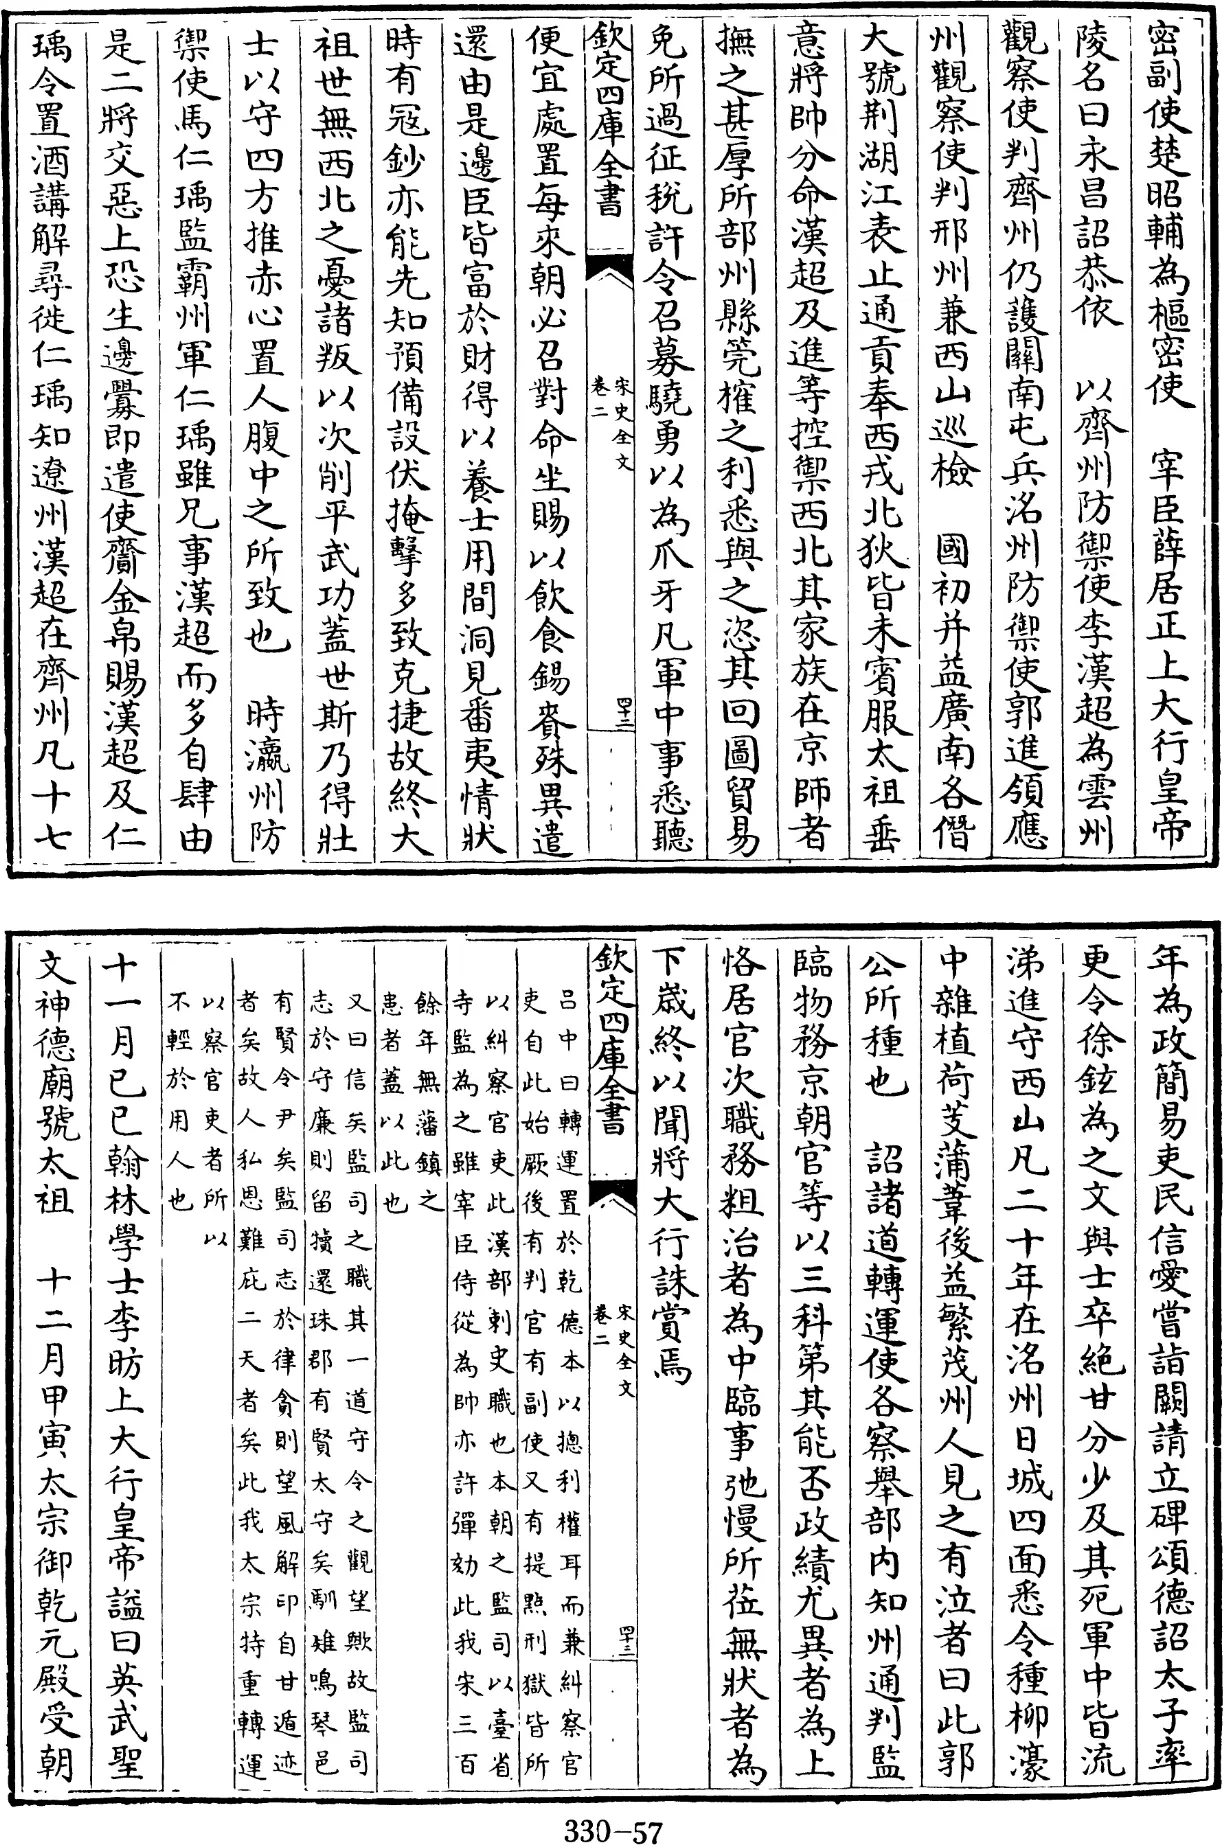 密副使楚昭輔為樞密使　宰臣薛居正上大行皇帝
陵名曰永昌詔恭依　以齊州防禦使李漢超為雲州
觀察使判齊州仍護關南屯兵洺州防禦使郭進領應
州觀察使判邢州兼西山巡檢　國初并益廣南各僭
大號荆湖江表止通貢奉西戎北狄皆未賓服太祖垂
意將帥分命漢超及進等控禦西北其家族在京師者
撫之甚厚所部州縣筦榷之利悉與之恣其回圖貿易
免所過征稅許令召募驍勇以為爪牙凡軍中事悉聽
欽定四庫全書
宋史全文
卷二
四十三
便宜處置每來朝必召對命坐賜以飲食錫賚殊異遣
還由是邊臣皆富於財得以養士用間洞見番夷情狀
時有寇鈔亦能先知預備設伏掩擊多致克捷故終大
祖世無西北之憂諸叛以次削平武功蓋世斯乃得壯
士以守四方推赤心置人腹中之所致也　時瀛州防
禦使馬仁瑀監霸州軍仁瑀雖兄事漢超而多自肆由
是二將交惡上恐生邊釁即遣使齎金帛賜漢超及仁
瑀令置酒講解尋徙仁瑀知遼州漢超在齊州凡十七
年為政簡易吏民信愛嘗詣闕請立碑頌德詔太子率
更令徐鉉為之文與士卒絶甘分少及其死軍中皆流
涕進守西山凡二十年在洺州日城四面悉令種柳濠
中雜植荷芰蒲葦後益繁茂州人見之有泣者曰此郭
公所種也　詔諸道轉運使各察舉部内知州通判監
臨物務京朝官等以三科第其能否政績尤異者為上
恪居官次職務粗治者為中臨事弛慢所莅無狀者為
下嵗終以聞將大行誅賞焉
欽定四庫全書
宋史全文
卷二
四十三
吕中曰轉運置於乾德本以揔利權耳而兼糾察官
吏自此始厥後有判官有副使又有提㸃刑獄皆所
以糾察官吏此漢部刺史職也本朝之監司以臺省
寺監為之雖宰臣侍從為帥亦許彈劾此我宋三百
餘年無藩鎮之
患者蓋以此也
又曰信矣監司之職其一道守令之觀望歟故監司
志於守廉則留犢還珠郡有賢太守矣馴雉鳴琴邑
有賢令尹矣監司志於律貪則望風解印自甘遁迹
者矣故人私恩難庇二天者矣此我太宗特重轉運
以察官吏者所以
不輕於用人也
十一月己巳翰林學士李昉上大行皇帝謚曰英武聖
文神德廟號太祖　十二月甲寅太宗御乾元殿受朝
330-57